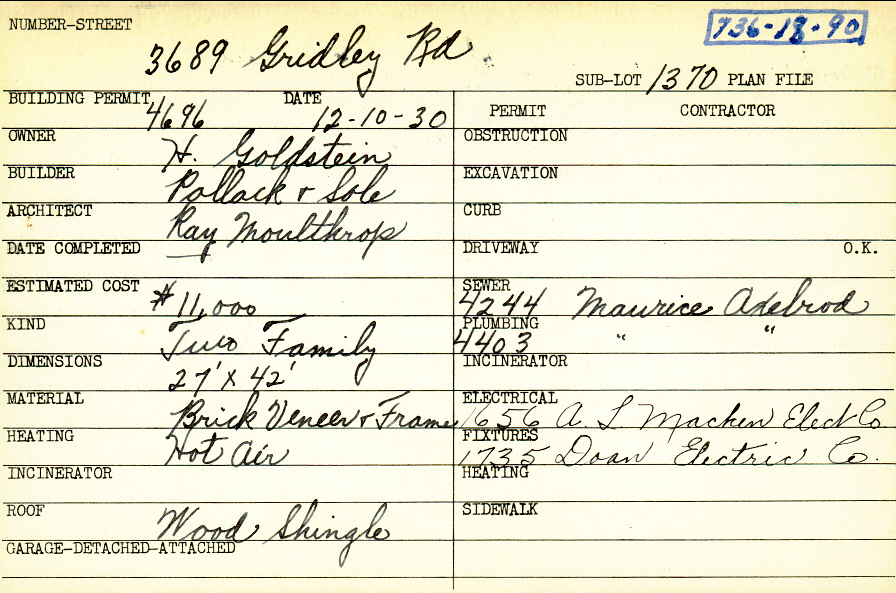 NUMBER-STREET
736-18-90
3689 Gridley Rd
SUB-LOT 1370 PLAN FILE
BUILDING PERMIT 4696 DATE 12-10-30
PERMIT CONTRACTOR
OWNER H. Goldstein
OBSTRUCTION
BUILDER Pollack & Sole
EXCAVATION
ARCHITECT Ray Moulthrop
CURB
DATE COMPLETED —
DRIVEWAY O.K.
ESTIMATED COST $11,000
SEWER 4244 Maurice Axelrod
KIND Two Family
PLUMBING 4403 " "
DIMENSIONS 27' X 42'
INCINERATOR
MATERIAL Brick Veneer & Frame
ELECTRICAL 1656 A. L. Macken Elect Co
HEATING Hot Air
FIXTURES 1735 Doan Electric Co.
INCINERATOR
HEATING
ROOF Wood Shingle
SIDEWALK
GARAGE-DETACHED-ATTACHED